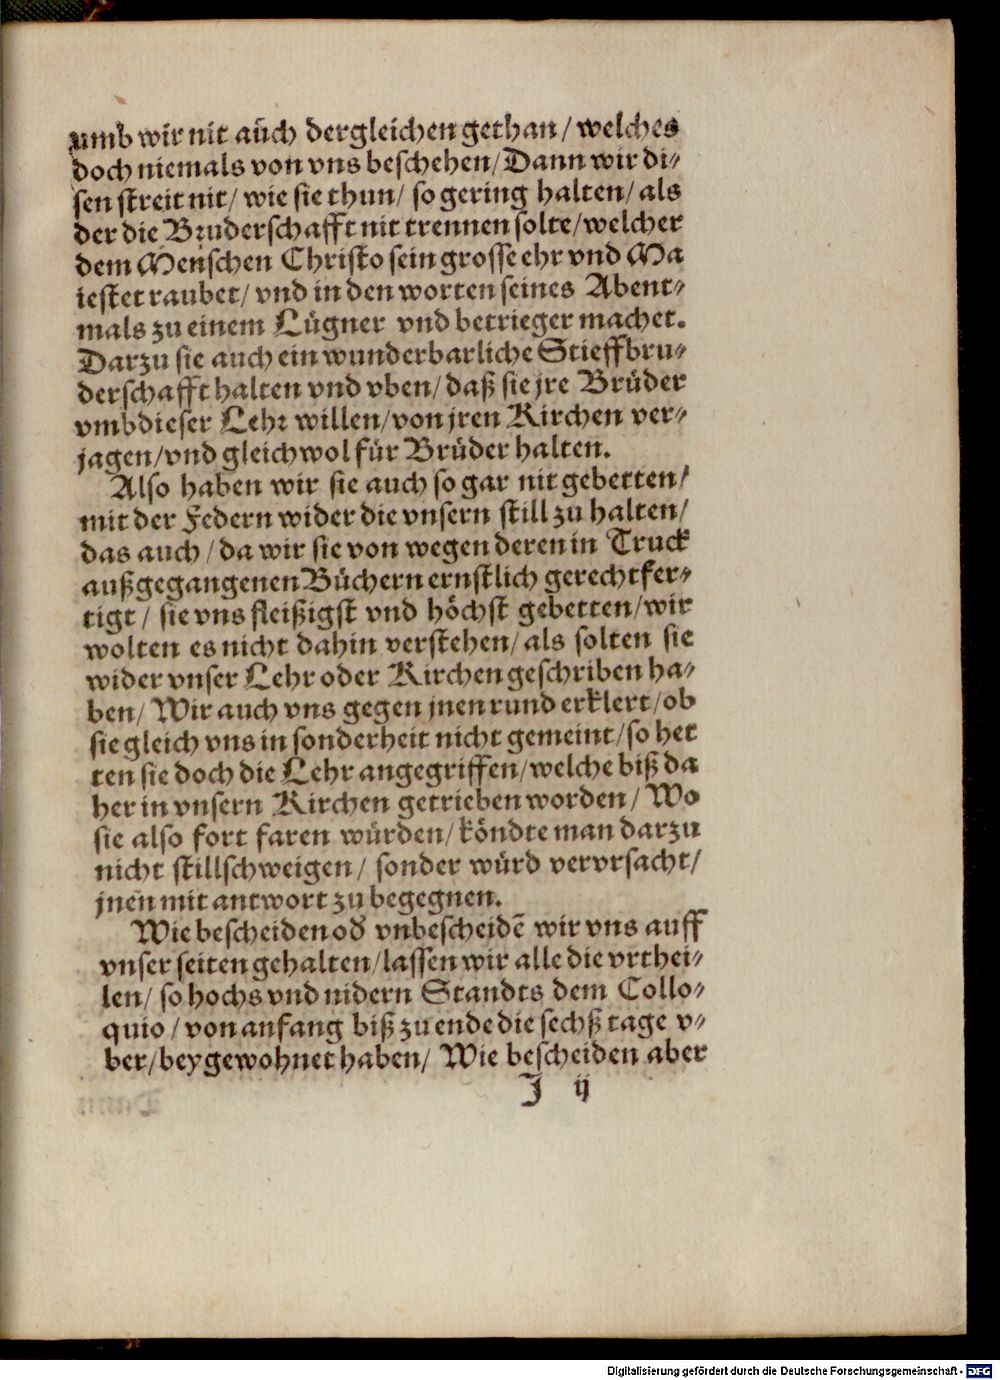 vmb wir nit auch dergleichen gethan / welches
doch niemals von vns beschehen / Dann wir di⸗
sen streit nit / wie sie thun / so gering halten / als
der die Bruderschafft nit trennen solte / welcher
dem Menschen Christo sein grosse ehr vnd Ma
iestet raubet / vnd in den worten seines Abent⸗
mals zu einem Lügner vnd betrieger machet.
Darzu sie auch ein wunderbarliche Stieffbru⸗
derschafft halten vnd vben / daß sie jre Brüder
vmb dieser Lehr willen / von jren Kirchen ver⸗
jagen / vnd gleichwol für Brüder halten.
Also haben wir sie auch so gar nit gebetten /
mit der Federn wider die vnsern still zu halten /
das auch / da wir sie von wegen deren in Truck
außgegangenen Büchern ernstlich gerechtfer⸗
tigt / sie vns fleißigst vnd höchst gebetten / wir
wolten es nicht dahin verstehen / als solten sie
wider vnser Lehr oder Kirchen geschriben ha⸗
ben / Wir auch vns gegen jnen rund erklert / ob
sie gleich vns in sonderheit nicht gemeint / so het
ten sie doch die Lehr angegriffen / welche biß da
her in vnsern Kirchen getrieben worden / Wo
sie also fort faren würden / köndte man darzu
nicht stillschweigen / sonder würd vervrsacht /
jnen mit antwort zu begegnen.
Wie bescheiden od vnbescheidē wir vns auff
vnser seiten gehalten / lassen wir alle die vrthei⸗
len / so hochs vnd nidern Standts dem Collo⸗
quio / von anfang biß zu ende die sechß tage v⸗
ber / beygewohnet haben / Wie bescheiden aber
J ij
Digitalisierung gefördert durch die Deutsche Forschungsgemeinschaft - DFG